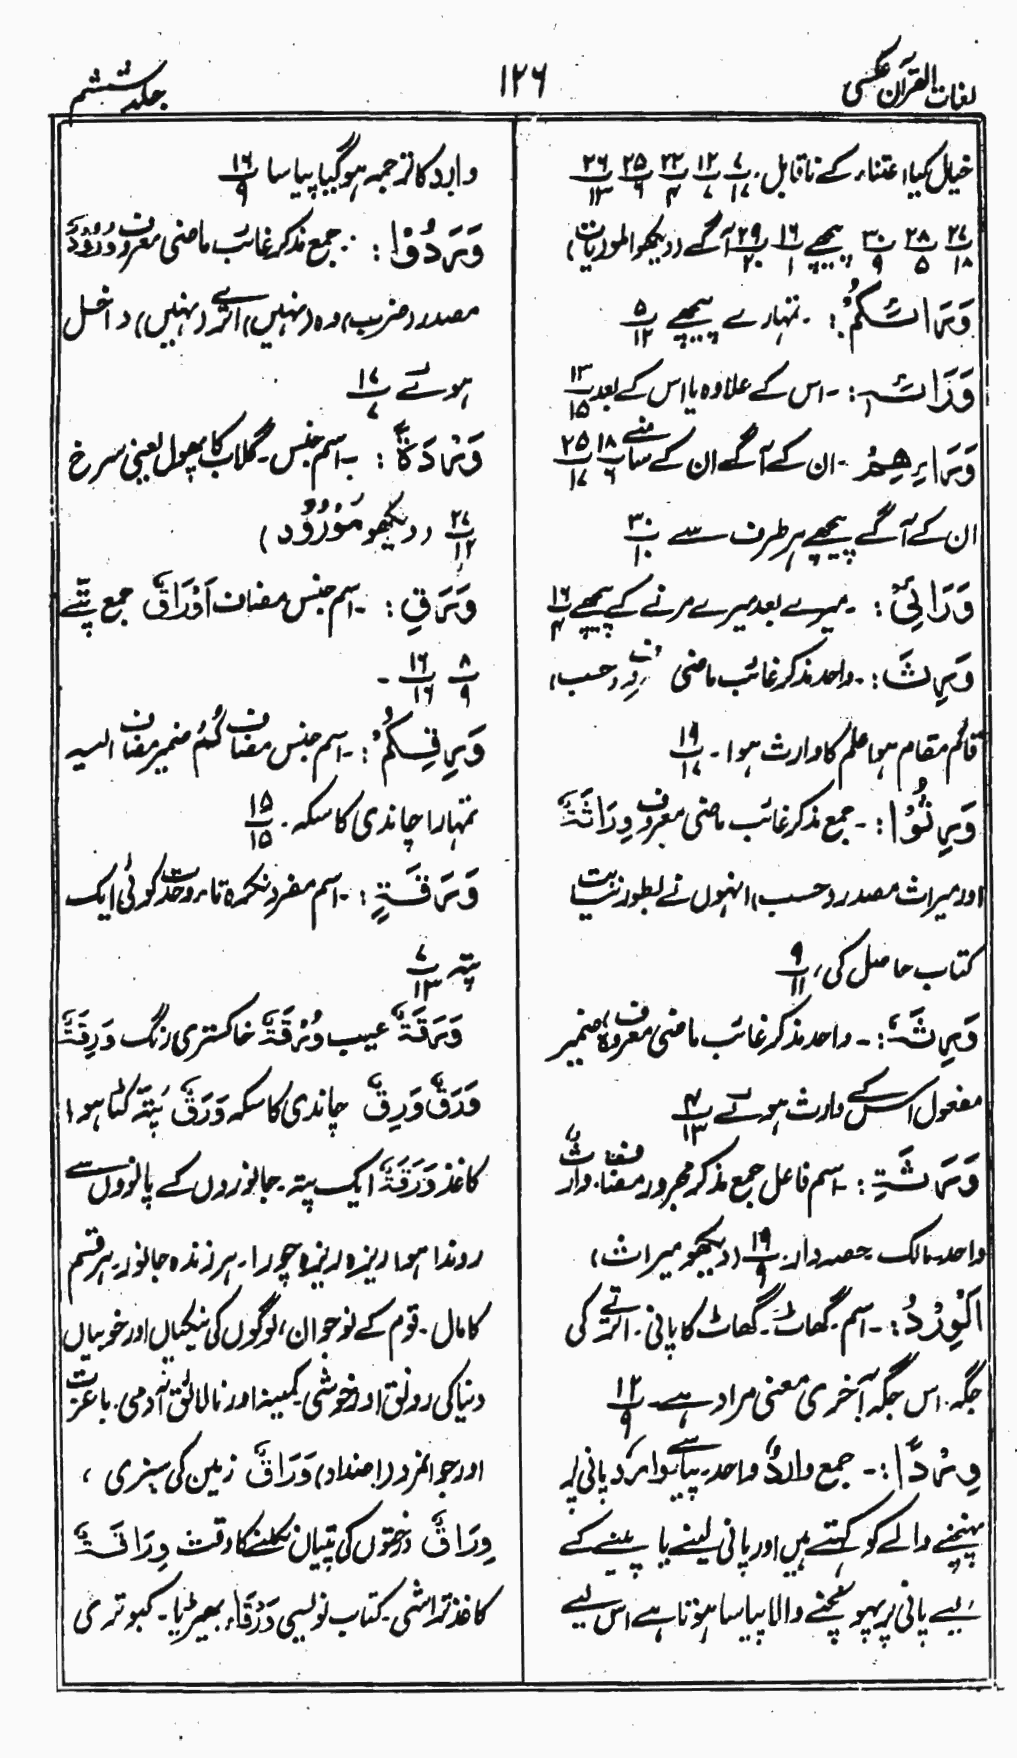 لغات القرآن عکسی
۱۲۶
جلد ششم
خیال کیا، اعتناء کے ناقابل۔ ۷/۱۷ ۱۲/۷ ۲۲/۴ ۲۵/۶ ۲۶/۱۳
۲۷/۱۸ ۲۸/۵ ۳۰/۹ پیچھے ۱۶/۱ ۲۹/۲۰ آگے (دیکھو الموریات)
وَرَائَکُمْ :۔ تمہارے پیچھے ۵/۱۲
وَرَائَہٗ :۔ اس کے علاوہ یا اس کے بعد ۱۳/۱۵
وَرَاءِھِمْ ۔ ان کے آگے ان کے سامنے ۱۸/۶ ۲۵/۱۷
ان کے آگے پیچھے ہر طرف سے ۳۰/۱۰
وَرَائِیْ :۔ میرے بعد میرے مرنے کے پیچھے ۱۶/۴
وَرِثَ :۔ واحد مذکر غائب ماضی (حسب)
قائم مقام ہوا علم کا وارث ہوا۔ ۱۹/۱۷
وَرِثُوْا :۔ جمع مذکر غائب ماضی معروف وِرَاثَۃٌ
اور میراث مصدر (حسب) انہوں نے بطور نیت
کتاب حاصل کی، ۹/۱۱
وَرِثَہٗ :۔ واحد مذکر غائب ماضی معروف ہٗ ضمیر
مفعول اس کے وارث ہوئے ۴/۱۳
وَرَثَۃِ :۔ اسم فاعل جمع مذکر مجرور مضاف۔ وارثٌ
واحد۔ مالک حصہ دار۔ ۱۹/۹ (دیکھو میراث)
اَلْوِرْدُ :۔ اسم۔ گھاٹ۔ گھاٹ کا پانی۔ اترنے کی
جگہ۔ اس جگہ آخری معنی مراد ہے۔ ۱۲/۹
وِرْدًا :۔ جمع واردٌ واحد۔ پیاسے وارد پانی پر
پہنچنے والے کو کہتے ہیں اور پانی لینے یا پینے کے
لیے پانی پر پہونچنے والا پیاسا ہوتا ہے اس لیے
وارد کا ترجمہ ہو گیا پیاسا ۱۶/۹
وَرَدُوْا :۔ جمع مذکر غائب ماضی معروف وُرُوْدٌ
مصدر (ضرب) وہ (نہیں) اترے (نہیں) داخل
ہوتے ۱۷/۷
وَرْدَۃً :۔ اسم جنس۔ گلاب کا پھول یعنی سرخ
۲۷/۱۲ (دیکھو مَوْرُوْد)
وَرَقِ :۔ اسم جنس مضاف اَوْرَاقٌ جمع پتے
۸/۹ ۱۶/۱۶ ۔
وَرِقِکُمْ :۔ اسم جنس مضاف کُمْ ضمیر مضاف الیہ
تمہارا چاندی کا سکہ۔ ۱۵/۱۵
وَرَقَۃٍ :۔ اسم مفرد نکرہ تاء وحدت کوئی ایک
پتہ ۷/۱۳
وَرَقَۃٌ عیب وُرْقَۃٌ خاکستری رنگ وَرِقَۃٌ
وَرَقٌ وَرِقٌ چاندی کا سکہ وَرَقٌ پَتّہ کٹا ہوا
کاغذ وَرَقَۃٌ ایک پتہ۔ جانوروں کے پانوں سے
روندا ہوا ریزہ ریزہ چورا۔ ہر زندہ جانور۔ ہر قسم
کا مال۔ قوم کے نوجوان، لوگوں کی نیکیاں اور خوبیاں
دنیا کی رونق اور خوشی۔ کمینہ اور نالائق آدمی۔ باعزت
اور جوانمرد (اضداد) وَرَاقٌ زمین کی سبزی،
وِرَاقٌ درختوں کی پتیاں نکلنے کا وقت وِرَاقَۃٌ
کاغذ تراشی۔ کتاب نویسی وَرْقَاء بھیڑیا۔ کبوتری